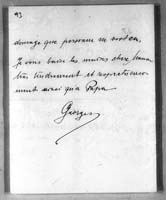 93
dommage que personne ne
Je vous baise les mains chère Maman
très tendrement et respectueuse
ment ainsi qu'à Papa
Georges